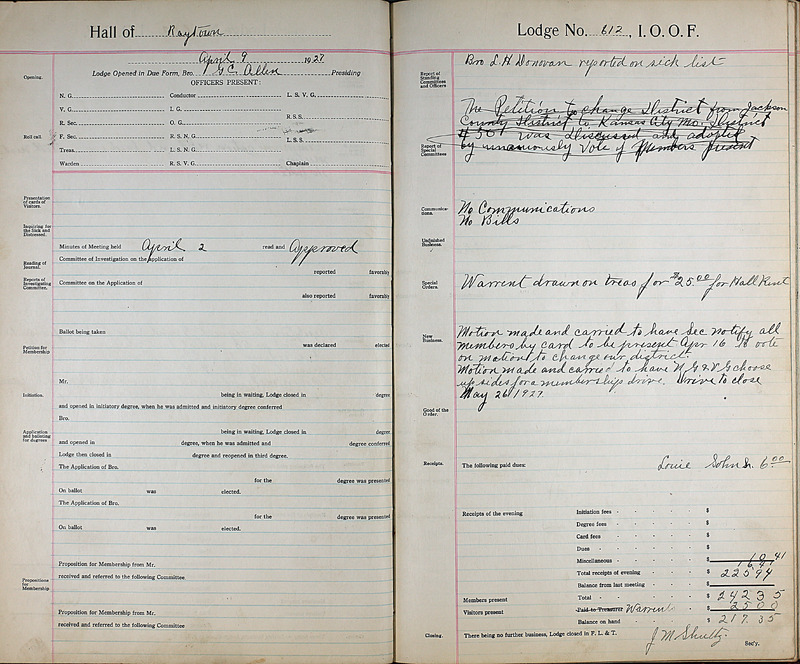 Hall of Raytown
April 9 1927
Lodge Opened in Due Form, Bro. G C. Allen Presiding
OFFICERS PRESENT:
Opening.
N. G. Conductor L. S. V. G.
V. G. I. G.
R. Sec. O. G. R. S. S.
Roll call. F. Sec. R. S. N. G. L. S. S.
Treas. L. S. N. G.
Warden R. S. V. G. Chaplain
Presentation of cards of Visitors.
Inquiring for the Sick and Distressed.
Minutes of Meeting held April 2 read and Approved
Reading of Journal.
Committee of Investigation on the application of
reported favorably
Reports of Investigating Committee.
Committee on the Application of
also reported favorably
Ballot being taken
was declared elected
Petition for Membership
Mr.
Initiation.
being in waiting, Lodge closed in degree
and opened in initiatory degree, when he was admitted and initiatory degree conferred
Bro.
Application and balloting for degrees
being in waiting, Lodge closed in degree
and opened in degree, when he was admitted and degree conferred
Lodge then closed in degree and reopened in third degree.
The Application of Bro.
for the degree was presented
On ballot was elected.
The Application of Bro.
for the degree was presented
On ballot was elected.
Proposition for Membership from Mr.
received and referred to the following Committee
Propositions for Membership
Proposition for Membership from Mr.
received and referred to the following Committee
Lodge No. 612, I. O. O. F.
Bro L H Donovan reported on sick list
Report of Standing Committees and Officers
The Petition to change District from Jackson
County District to Kansas City Mo. District
#50 was discussed and adopted
by unanimously vote of members present
Report of Special Committees
Communications.
No Communications
No Bills
Unfinished Business.
Special Orders.
Warrent drawn on treas for $25.00 for Hall Rent
New Business.
Motion made and carried to have Sec notify all
members by card to be present Apr 16 to vote
on motion to change our district.
Motion made and carried to have N G & V G choose
up sides for a membership drive. Drive to close
May 26 1927.
Good of the Order.
Receipts. The following paid dues: Louie John Sr. 6.00
Receipts of the evening Initiation fees - $
Degree fees - $
Card fees - $
Dues - $
Miscellaneous - $ 10.41
16.41
Total receipts of evening - $ 225.94
Balance from last meeting - $
Members present Total - $ 242 35
Visitors present Paid to Treasurer Warrent $ 25 00
Balance on hand $ 217.35
Closing. There being no further business, Lodge closed in F. L. & T.
J M Shultz Sec'y.